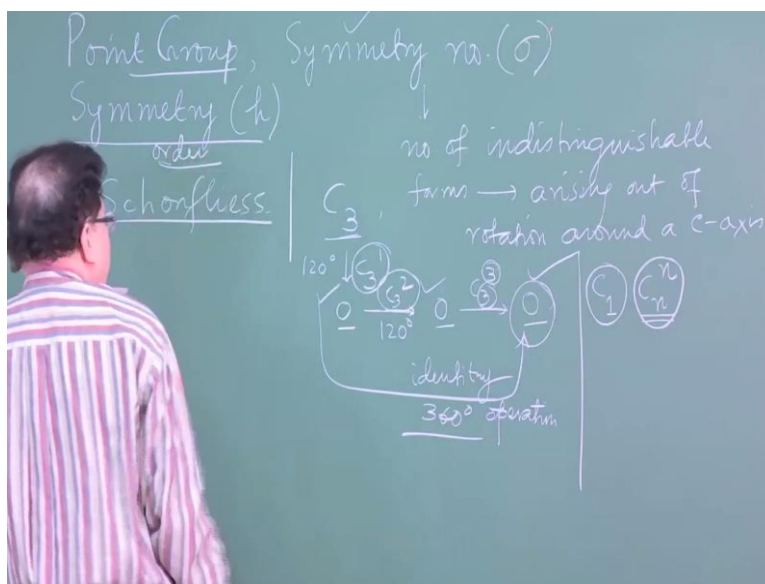 Point Group, Symmetry no. (σ)
Symmetry (h)
order
Schonfliess.
↓
no of indistinguishable
forms → arising out of
rotation around a C-axis
C₃,
120° ↓ C₃¹ C₃² C₃³
O → O → O
120°
identity
360° operation
C₁ Cₙⁿ